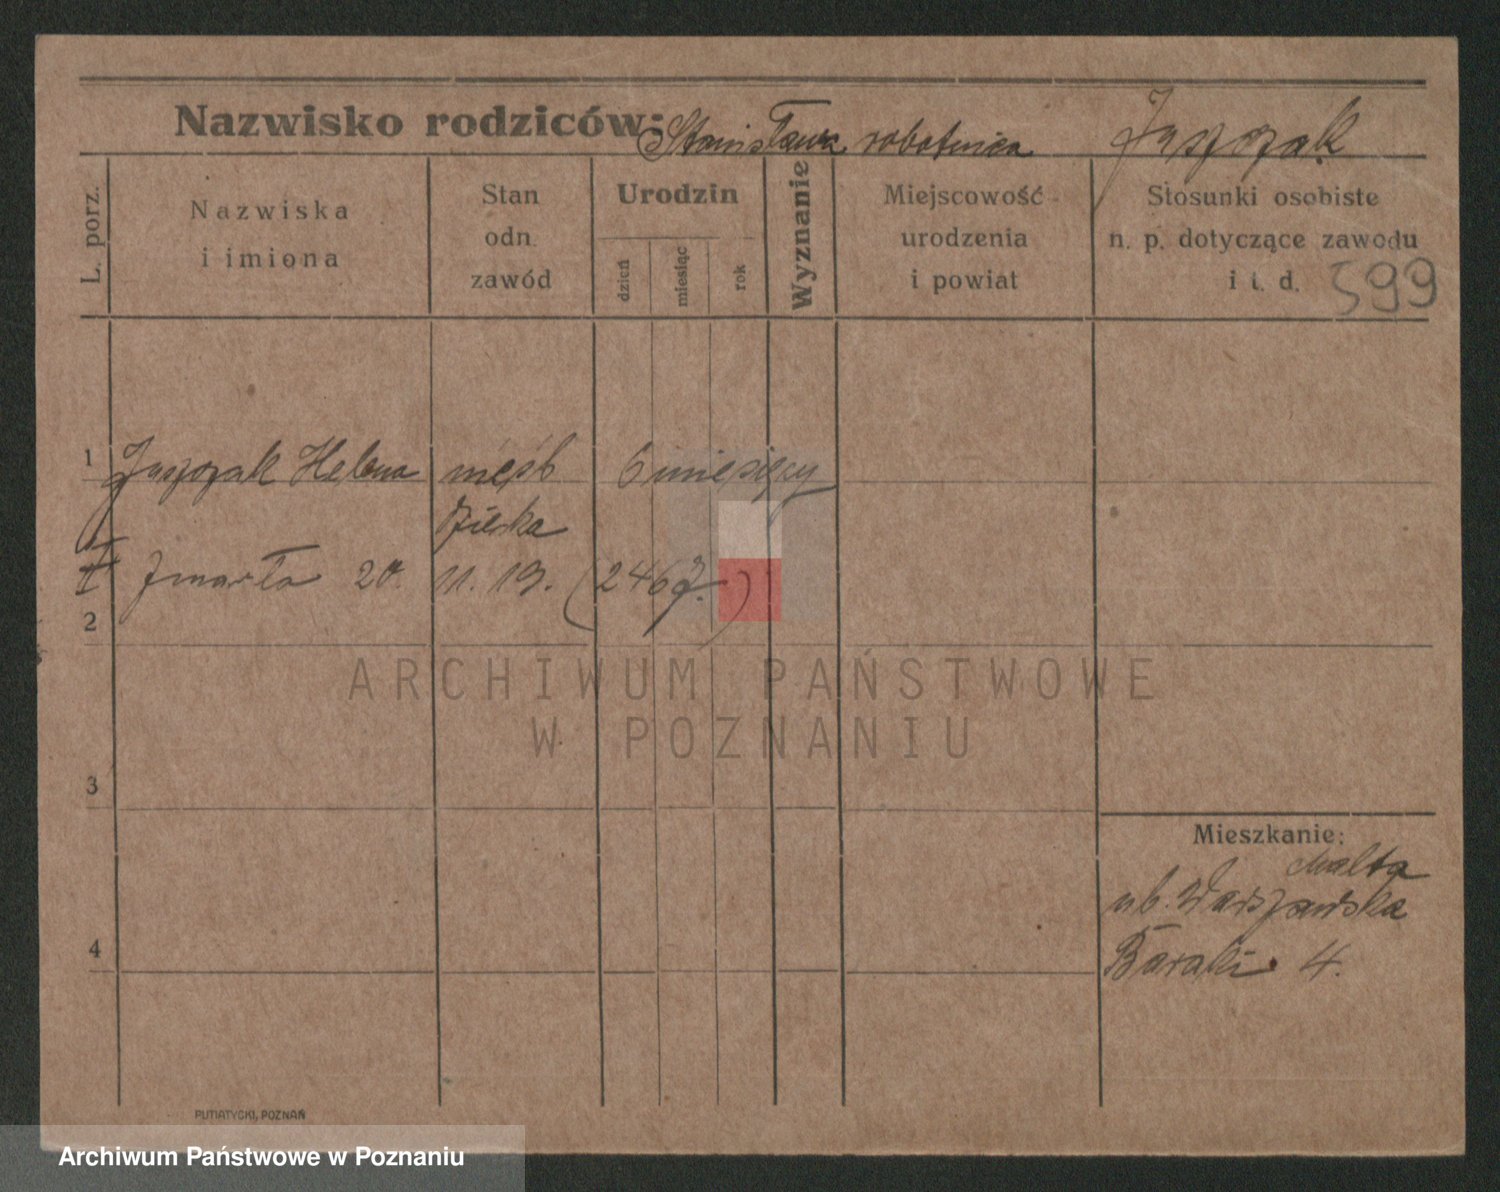 Nazwisko rodziców: Stanisława robotnica Juszczak
L. porz.
Nazwiska
i imiona
Stan
odn.
zawód
Urodzin
dzień
miesiąc
rok
Wyznanie
Miejscowość
urodzenia
i powiat
Stosunki osobiste
n. p. dotyczące zawodu
i t. d.
599
1 Juszczak Helena nieśb 6 miesięcy
Zmarła 20. 11. 19. (246
2
3
4
Mieszkanie:
Malta
ul. Warszawska
Baraki 4.
PUTIATYCKI, POZNAŃ
ARCHIWUM PAŃSTWOWE
W POZNANIU
Archiwum Państwowe w Poznaniu